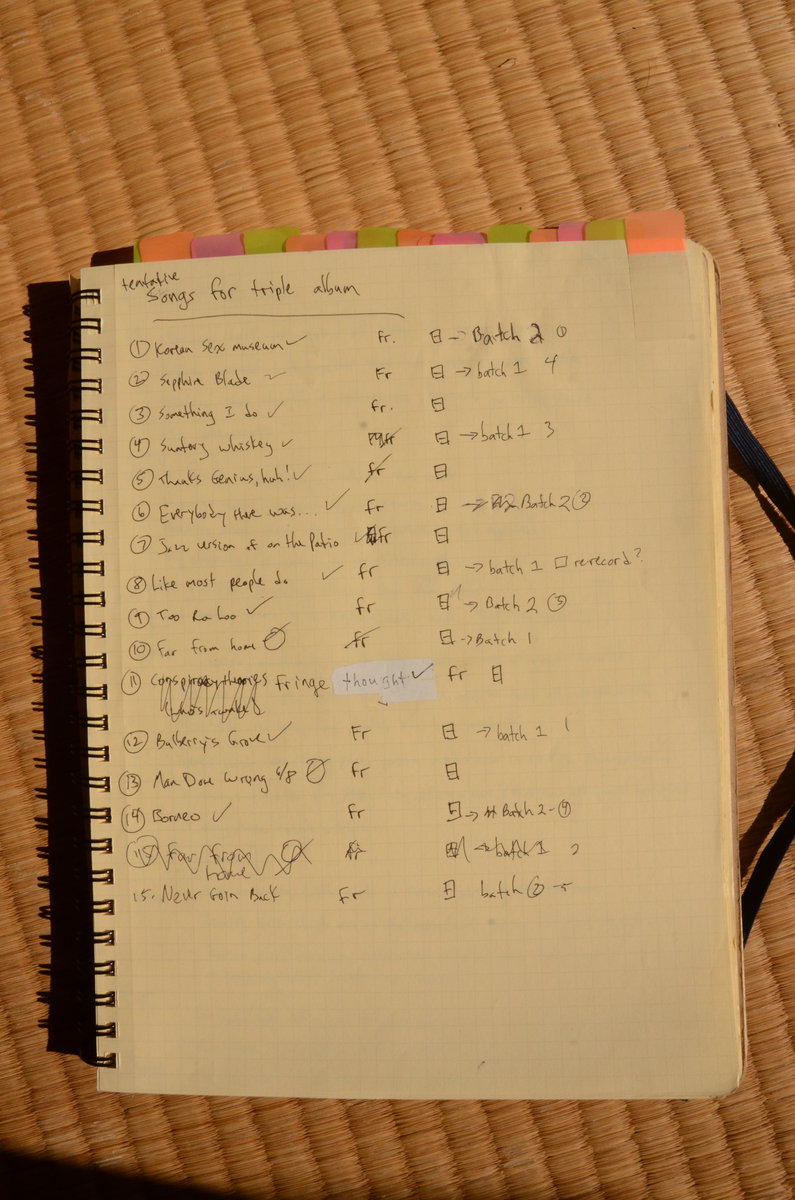 tentative
Songs for triple album
① Korean Sex museum ✓ Fr. 日 → Batch 2 ①
② Sapphire Blade ✓ Fr 日 → batch 1 4
③ Something I do ✓ fr. 日
④ Suntory whiskey ✓ fr 日 → batch 1 3
⑤ Thanks Genius, huh! ✓ fr 日
⑥ Everybody there was... ✓ fr 日 → Batch 2 ②
⑦ Jazz version of on the Patio ✓ fr 日
⑧ Like most people do ✓ fr 日 → batch 1 □ rerecord?
⑨ Too Ra Loo ✓ fr 日 → Batch 2 ③
⑩ Far from home fr 日 → Batch 1
⑪ Conspiracy theories fringe thought ✓ fr 日
⑫ Bulberry's Grove ✓ Fr 日 → batch 1 1
⑬ Man Done Wrong 6/8 fr 日
⑭ Borneo ✓ fr 日 → Batch 2 - ④
Far from fr → batch 1 2
home
15. Never Goin Back fr 日 batch ②